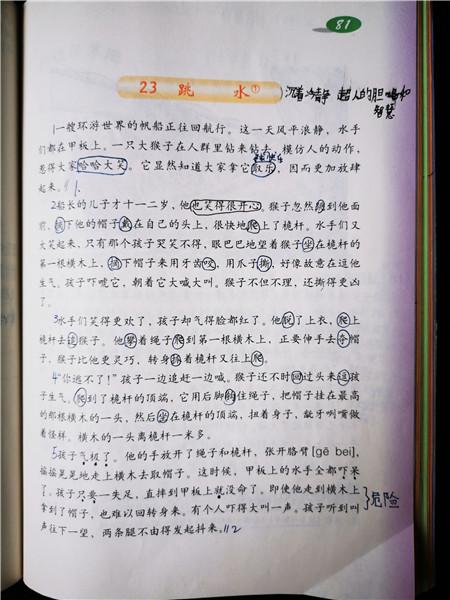 81
23 跳 水①
沉着冷静 超人的胆
智慧
1一艘环游世界的帆船正往回航行。这一天风平浪静，水手
们都在甲板上。一只大猴子在人群里钻来钻去，模仿人的动作，
惹得大家哈哈大笑。它显然知道大家拿它取乐，因而更加放肆
起来。
2船长的儿子才十一二岁，他也笑得很开心。猴子忽然跳到他面
前，摘下他的帽子戴在自己的头上，很快地爬上了桅杆。水手们又
大笑起来，只有那个孩子哭笑不得，眼巴巴地望着猴子坐在桅杆的
第一根横木上，摘下帽子来用牙齿咬，用爪子撕，好像故意在逗他
生气。孩子吓唬它，朝着它大喊大叫。猴子不但不理，还撕得更凶
了。
3水手们笑得更欢了，孩子却气得脸都红了。他脱了上衣，爬上
桅杆去追猴子。他攀着绳子爬到第一根横木上，正要伸手去夺帽
子，猴子比他更灵巧，转身抓着桅杆又往上爬。
4“你逃不了！”孩子一边追赶一边喊。猴子还不时回过头来逗孩
子生气。爬到了桅杆的顶端，它用后脚钩住绳子，把帽子挂在最高
的那根横木的一头，然后坐在桅杆的顶端，扭着身子，龇牙咧嘴做
着怪样。横木的一头离桅杆一米多。
5孩子气极了。他的手放开了绳子和桅杆，张开胳臂[gē bei]，
摇摇晃晃地走上横木去取帽子。这时候，甲板上的水手全都吓呆
了。孩子只要一失足，直摔到甲板上就没命了。即使他走到横木上
拿到了帽子，也难以回转身来。有个人吓得大叫一声。孩子听到叫
声往下一望，两条腿不由得发起抖来。112
危险